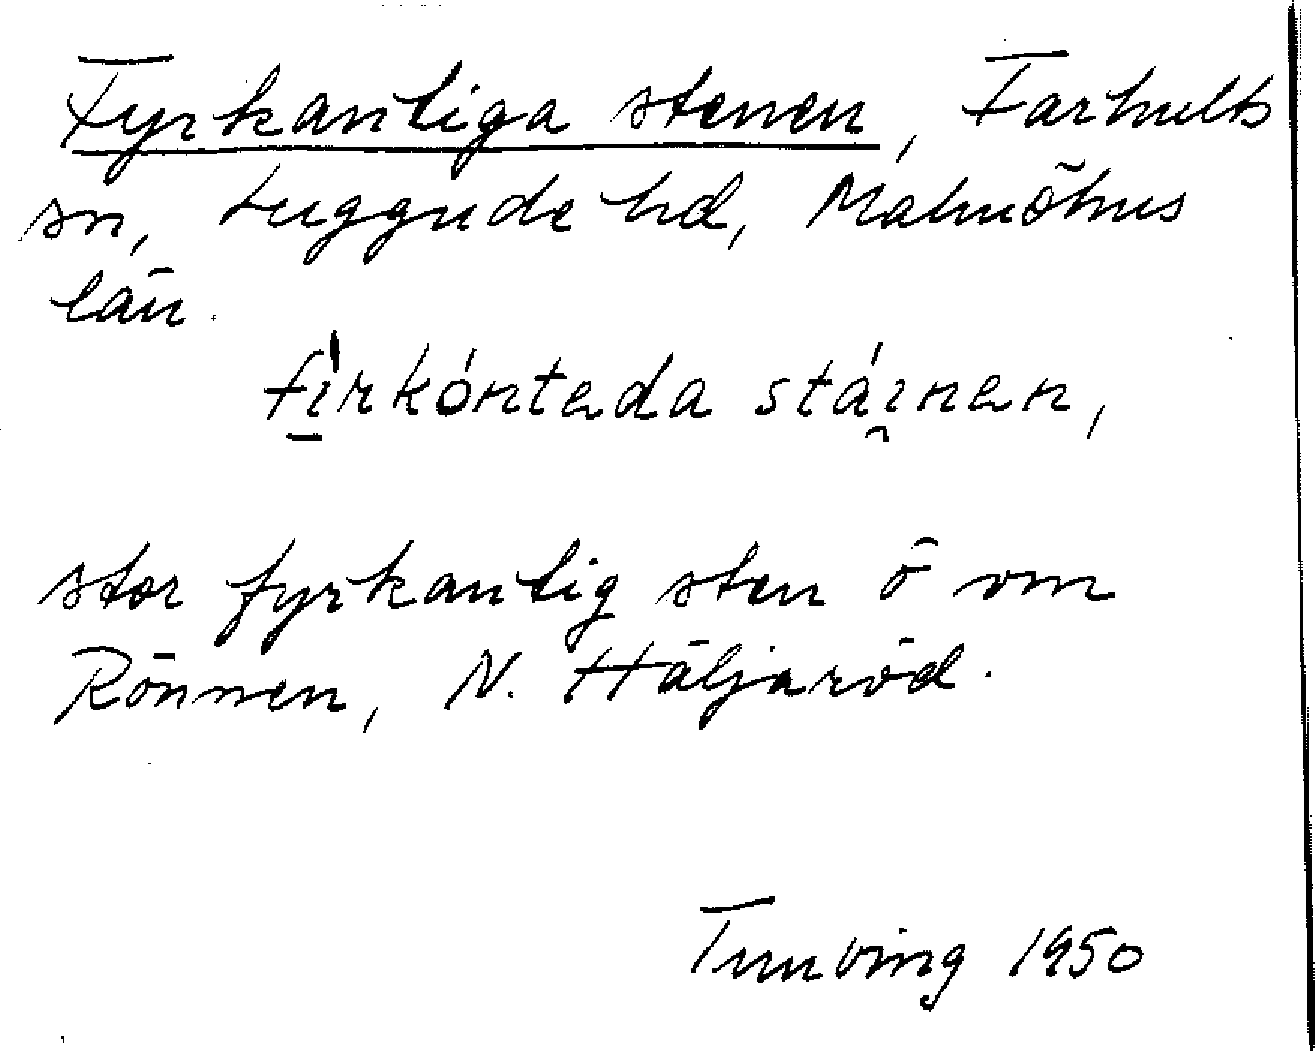 Fyrkantiga stenen, Farhults
sn, Luggude hd, Malmöhus
län.
fi̱rkóntada stái̯nan,
stor fyrkantig sten ö om
Rönnen, N. Häljaröd.
Tunving 1950